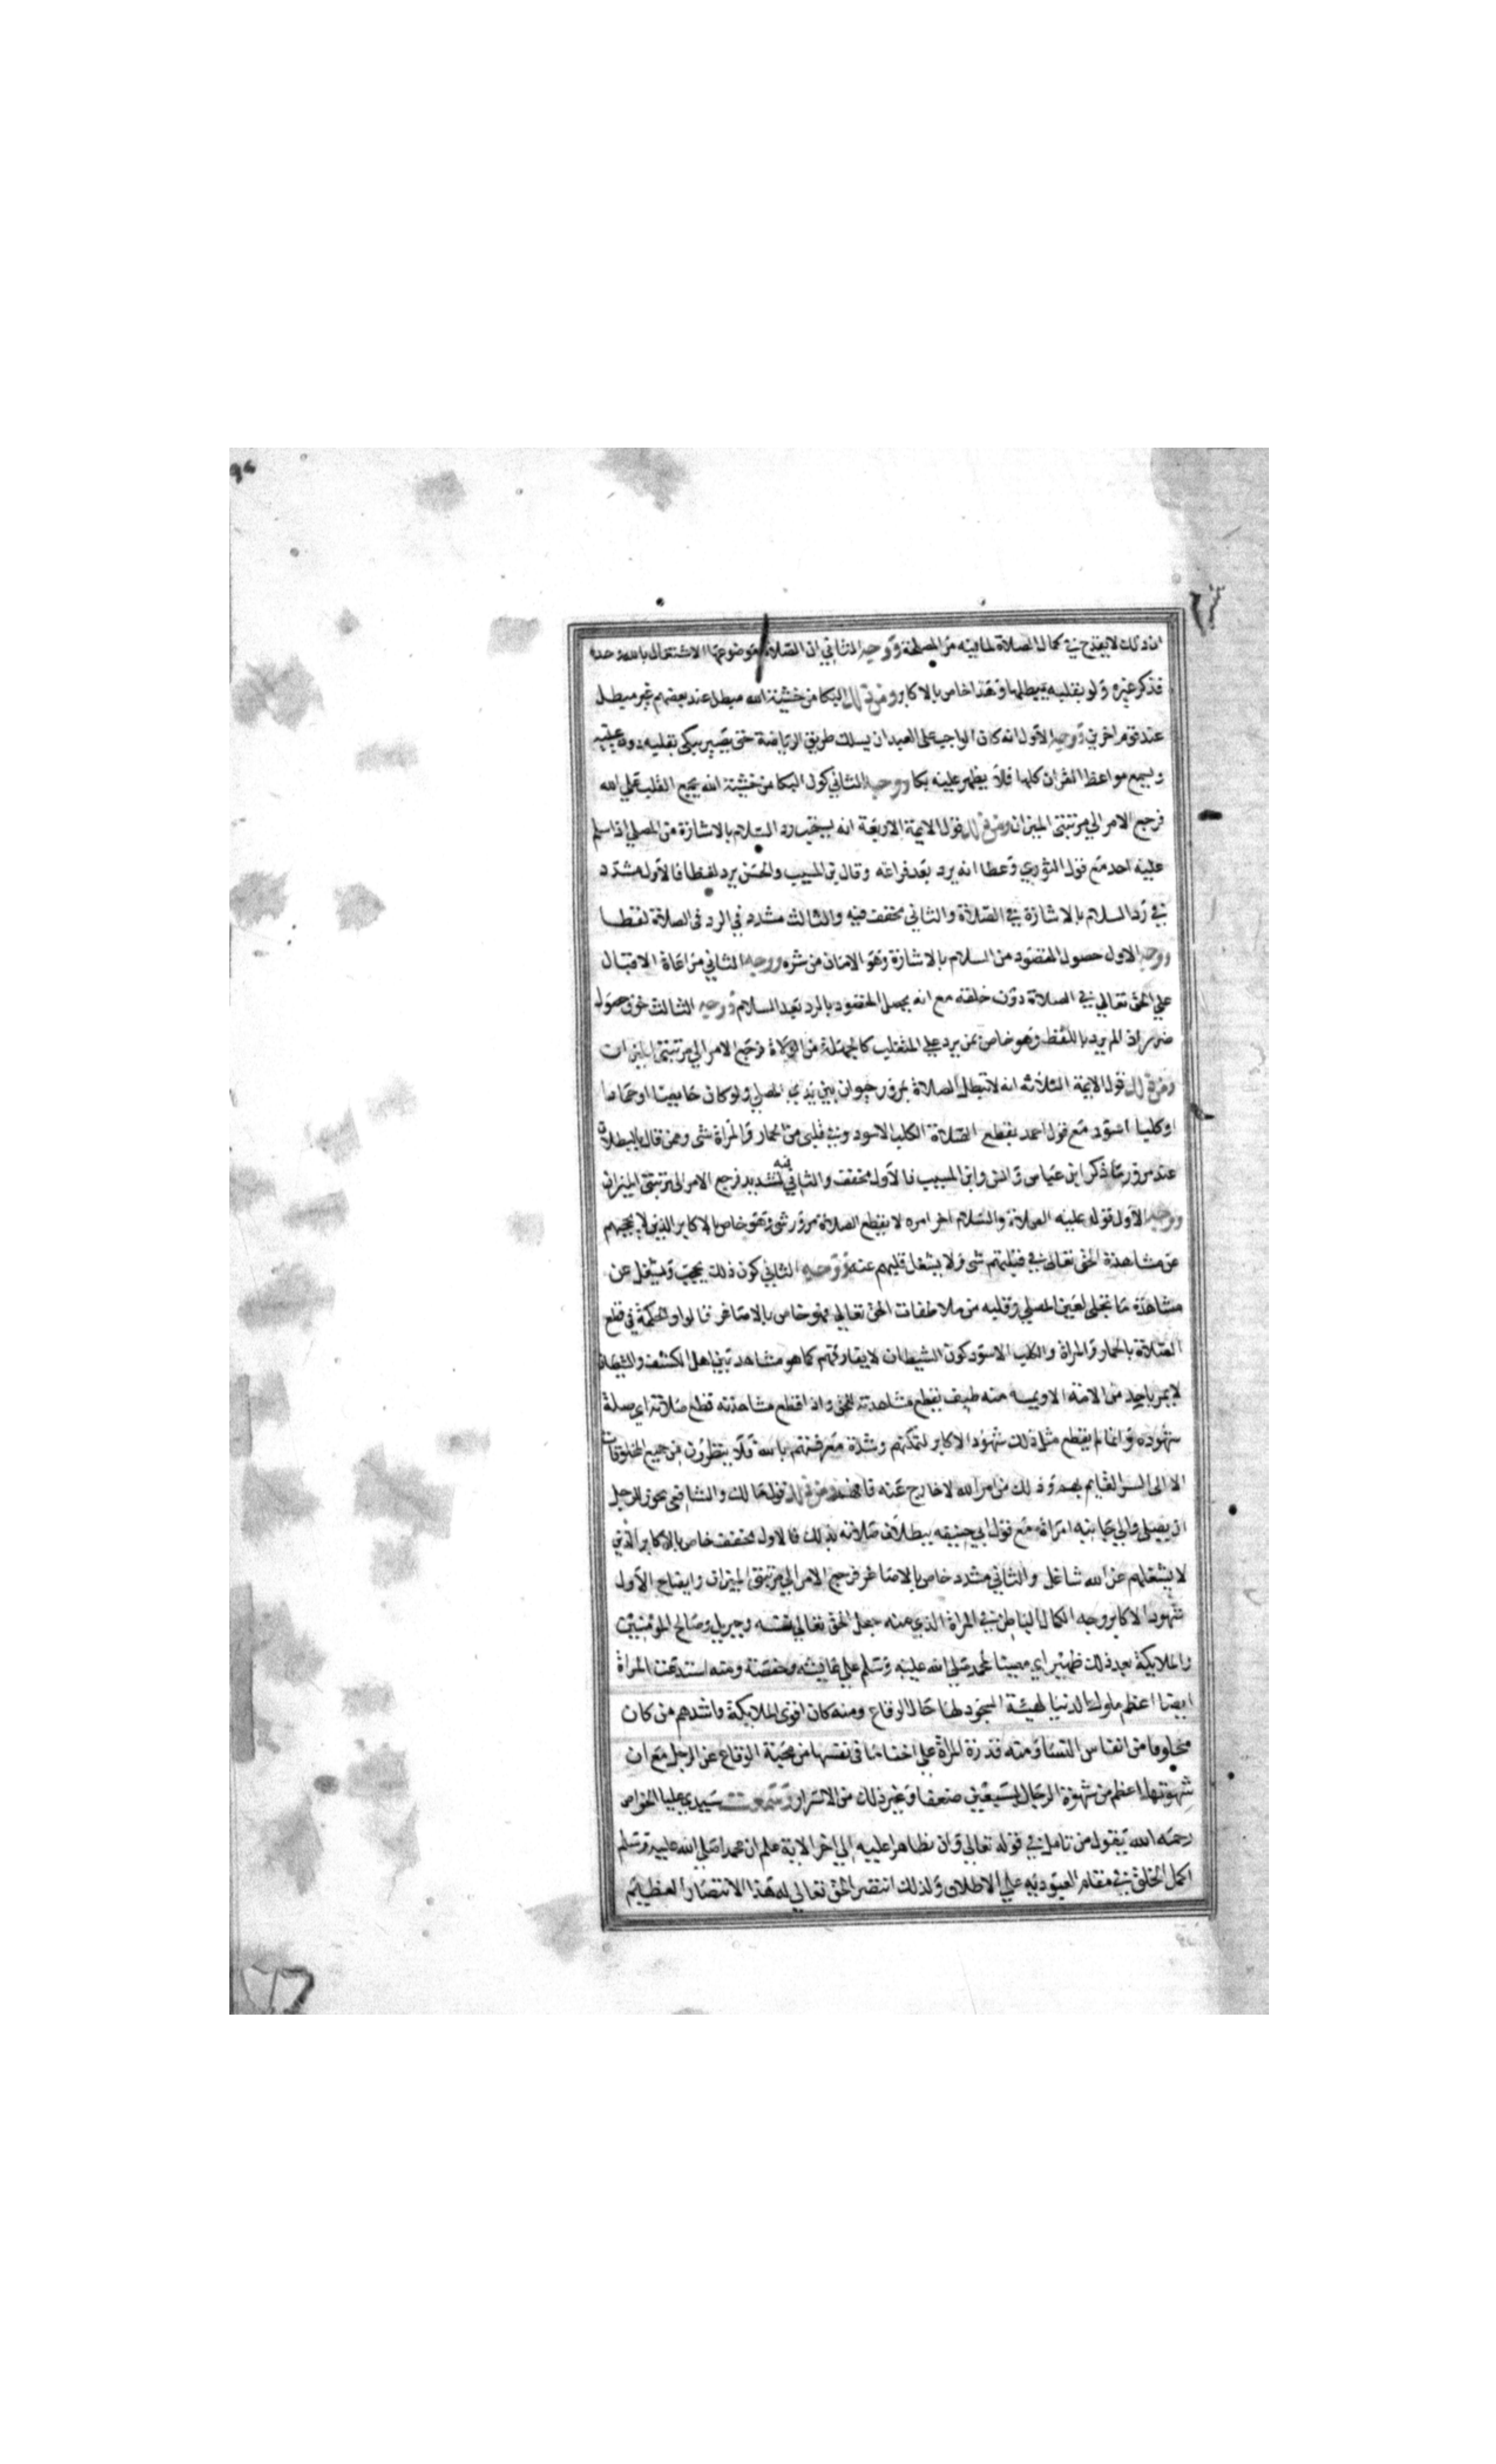 ان ذلك لا يقدح في كمال الصلاة لما فيه من المصلحة ووجه الثاني ان الصلاة موضوعها الاشتغال بالله وحده
فذكر غيره ولو بقلبه يبطلها وهذا خاص بالاكابر ومن ذلك البكا من خشية الله مبطل عند بعضهم غير مبطل
عند قوم اخرين ووجه الاول انه كان الواجب على العبد ان يسلك طريق الرياضة حتى يصير يبكى بقلبه دون عينيه
ويسمع مواعظ القران كلها فلا يظهر عليه بكا ووجه الثاني كون البكا من خشية الله يجمع القلب على الله
فرجع الامر الي مرتبتى الميزان ومن ذلك قول الايمة الاربعة انه يستحب رد السلام بالاشارة من المصلي اذا سلم
عليه احد مع قول الثوري وعطا انه يرد بعد فراغه وقال بن المسيب والحسن يرد لفظا فالاول مشدد
في رد السلام بالاشارة في الصلاة والثاني مخفف فيه والثالث مشدد في الرد في الصلاة لفظا
ووجه الاول حصول المقصود من السلام بالاشارة وهو الامان من شره ووجه الثاني مراعاة الاقبال
علي الحق تعالي في الصلاة دون خلقه مع انه يحصل المقصود بالرد بعد السلام ووجه الثالث خوف حصول
ضرر اذا لم يرد باللفظ وهو خاص بمن يرد علي المتغلب كالجهلة من الولاة فرجع الامر الي مرتبتى الميزان
ومن ذلك قول الايمة الثلاثه انه لا تبطل الصلاة بمرور حيوان بين يدي المصلي ولو كان حايضا او حمارا
او كلبا اسود مع قول احمد يقطع الصلاة الكلب الاسود وفي قلبى من الحمار والمراة شى وممن قال بالبطلان
عند مرور ما ذكر ابن عباس وانس وابن المسيب فالاول مخفف والثاني فيه تشديد فرجع الامر الى مرتبتى الميزان
ووجه الاول قوله عليه الصلاة والسلام اخر امره لا يقطع الصلاة مرور شى وهو خاص بالاكابر الذين لا يحجبهم
عن مشاهدة الحق تعالى في قبلتهم شى ولا يشغل قلبهم عنه ووجه الثاني كون ذلك يحجب ويشغل عن
مشاهدة ما تجلى لعين المصلي وقلبه من ملاطفات الحق تعالي فهو خاص بالاصاغر قالوا والحكمة في قطع
الصلاة بالحمار والمراة والكلب الاسود كون الشيطان لا يفارقهم كما هو مشاهد بين اهل الكشف والشيطان
لا يمر باحد من الامة الا ويمسه منه طيف يقطع مشاهدته للحق واذا قطع مشاهدته قطع صلاته اي صلة
شهوده وانما لم يقطع مثل ذلك شهود الاكابر لتمكنهم وشدة معرفتهم بالله فلا ينظرون من جميع المخلوقات
الا الى السر القايم بهم وذلك من امر الله لا خارج عنه ومن ذلك قول مالك والشافعى يجوز للرجل
ان يصلى والي جانبه امراة مع قول ابي حنيفه ببطلان صلاته بذلك فالاول مخفف خاص بالاكابر الذين
لا يشغلهم عن الله شاغل والثاني مشدد خاص بالاصاغر فرجع الامر الي مرتبتى الميزان وايضاح الاول
شهود الاكابر وجه الكمال الباطن في المراة الذي منه جعل الحق تعالي نفسه وجبريل وصالح المومنين
والملايكة بعد ذلك ظهير اي معينا لمحمد صلي الله عليه وسلم علي عايشه وحفصه ومنه استدعت المراة
ايضا اعظم ملوك الدنيا لهيئة السجود لها حال الوقاع ومنه كان اقوى الملايكة واشدهم من كان
مخلوقا من انفاس النسا ومنه قدرة المراة علي اخفا ما في نفسها من محبة الوقاع عن الرجل مع ان
شهوتها اعظم من شهوة الرجال بسبعين ضعفا وغير ذلك من الاسرار وسمعت سيدي عليا الخواص
رحمه الله يقول من تامل في قوله تعالي وان تظاهرا عليه الي اخر الاية علم ان محمدا صلي الله عليه وسلم
اكمل الخلق في مقام العبوديه علي الاطلاق ولذلك انتصر الحق تعالي له هذا الانتصار العظيم